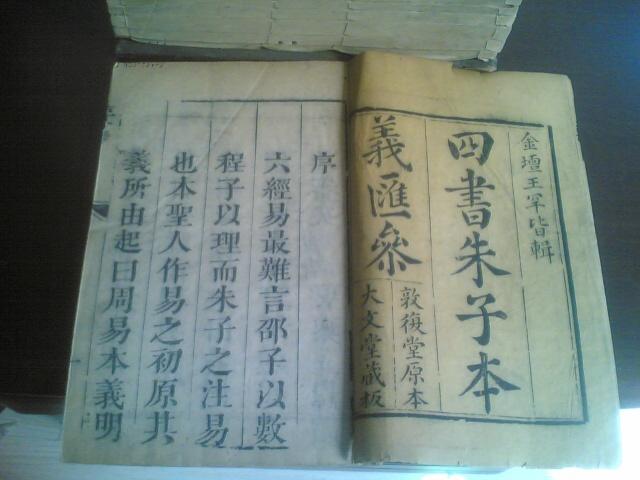 金壇王罕皆輯
四書朱子本
義匯叅
敦復堂原本
大文堂藏板
序
六經易最難言邵子以數
程子以理而朱子之注易
也本聖人作易之初原其
義所由起曰周易本義明